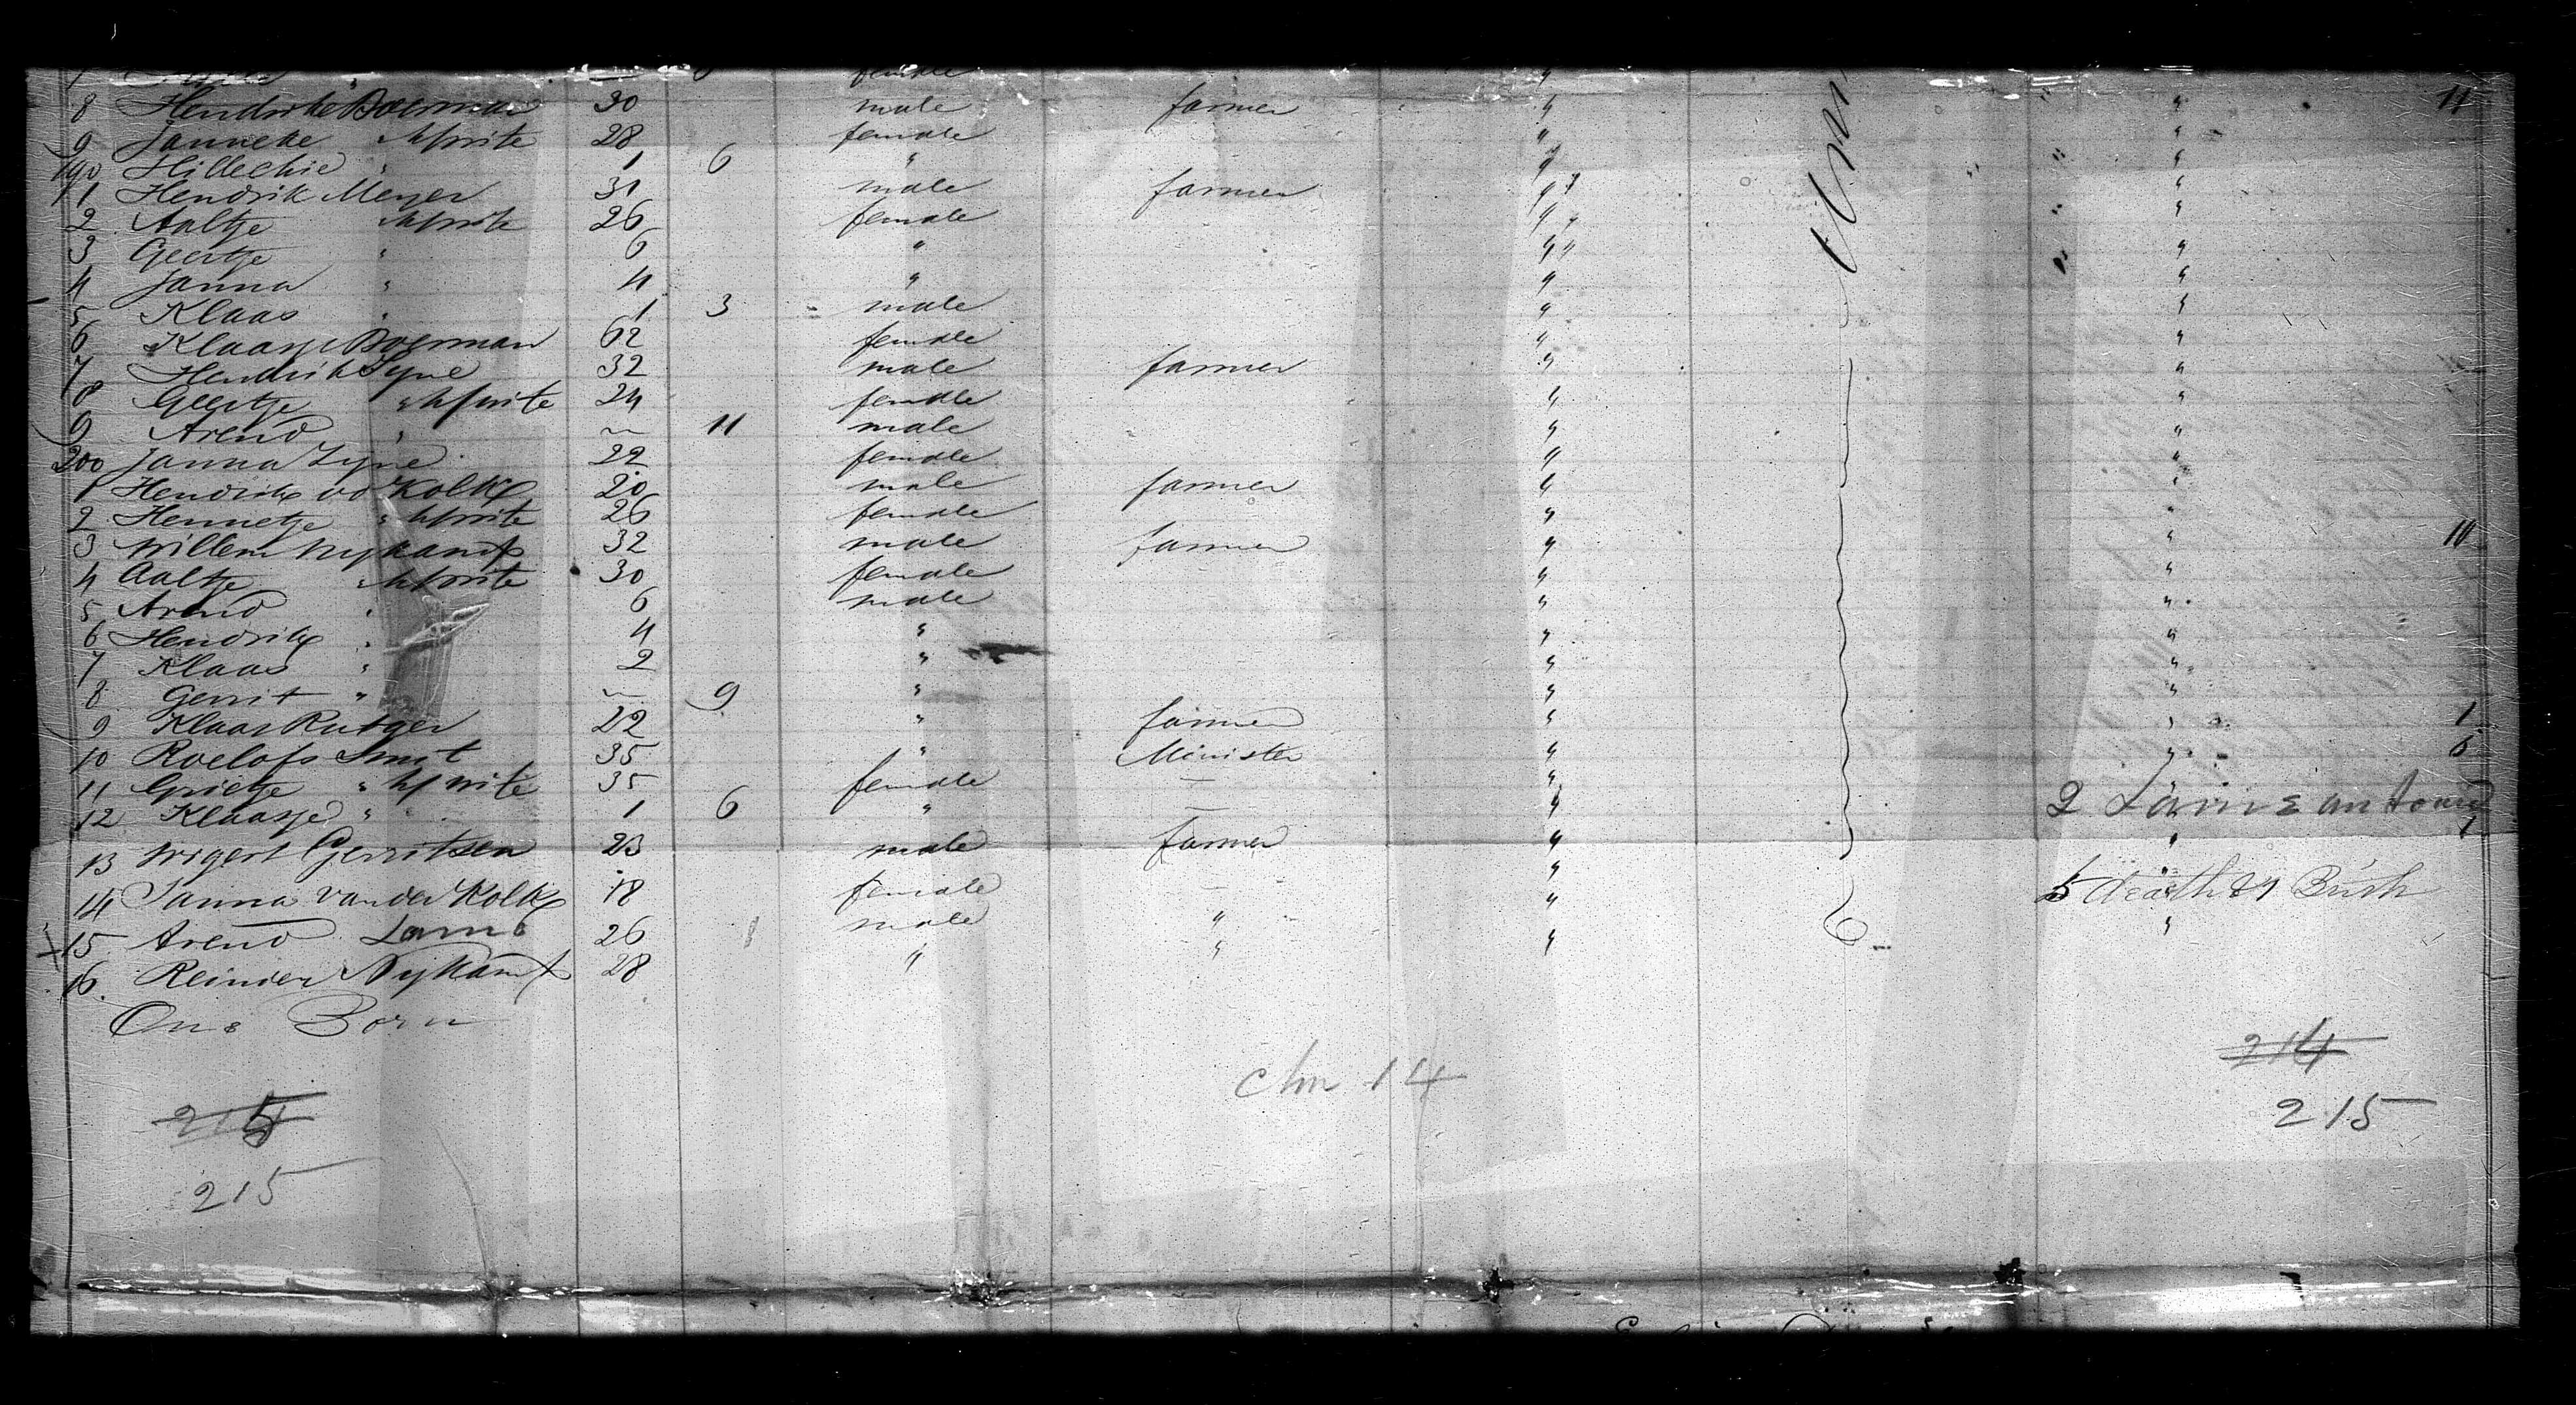 7 " female "
8 Hendrik Boerman 30 male farmer " " 11
9 Janneke " h/wife 28 female " "
190 Hillechie " 1 6 " " "
1 Hendrik Meyer 31 male farmer " "
2 Aaltje h/wife 26 female " "
3 Geertje " 6 " " "
4 Janna " 4 " " "
5 Klaas " 1 3 male " "
6 Klaasje Boerman 62 female " "
7 Hendrik 32 male farmer " "
8 Geertje " h/wife 24 female " "
9 Arend " — 11 male " "
200 Janna 22 female " "
1 Hendrik vd Kolk 20 male farmer " "
2 Hennetje " h/wife 26 female " "
3 Willem Nykamp 32 male farmer " " 10
4 Aaltje " h/wife 30 female " "
5 Arend " 6 male " "
6 Hendrik " 4 " " "
7 Klaas " 2 " " "
8 Gerrit " — 9 " " "
9 Klaas Rutger 22 " farmer " " 1
10 Roelofs Smit 35 " Minister " " 5
11 Grietje " h/wife 35 female — " "
12 Klaasje " 1 6 " — " 2
13 Wigert Gerritsen 23 male farmer " " 1
14 Janna van der Kolk 18 female — " 5 deaths
15 Arend 26 male " " "
16 Reinier Nykamp 28 " " "
One Born
214
clm 14
215
215
215